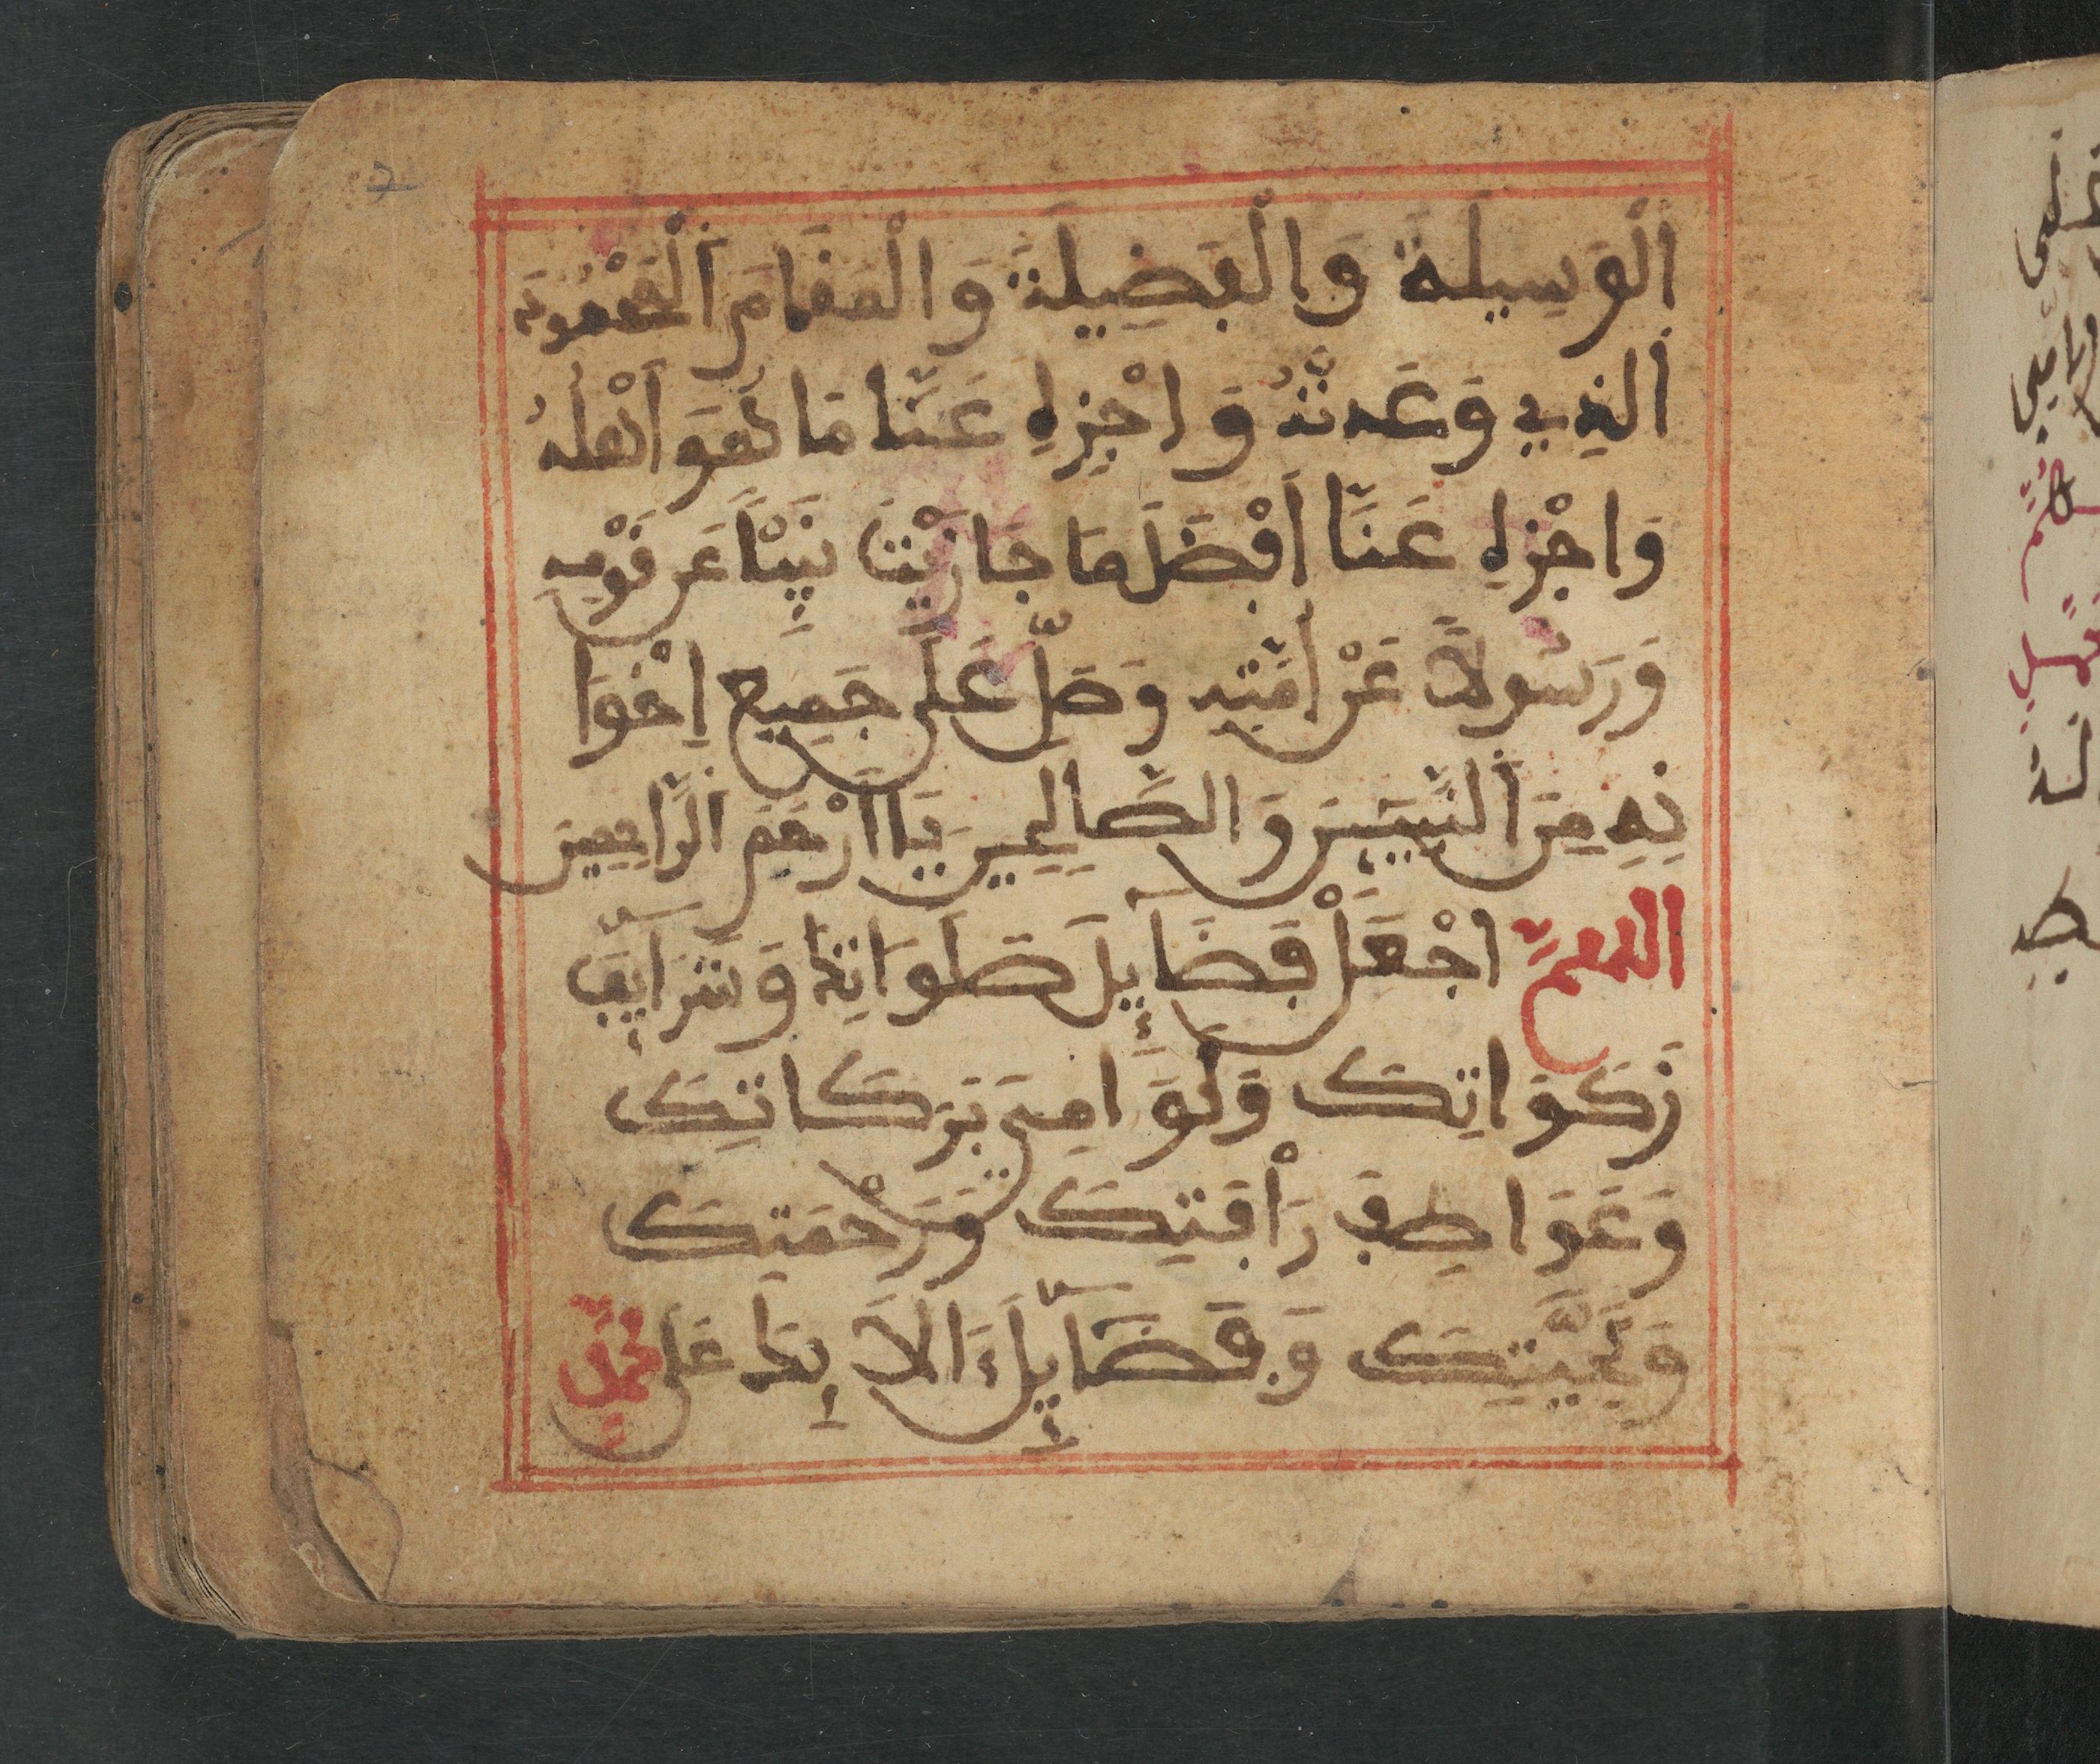 اَلْوَسِيلَةَ وَالْفَضِيلَةَ وَالْمَقَامَ اَلْمَحْمُودَ
اَلذِي وَعَدتَّهُ وَاجْزِهِ عَنَّا مَا هُوَ أَهْلُهُ
وَاجْزِهِ عَنَّا أَفْضَلَ مَا جَازَيْتَ نَبِيّاً عَن قَوْمِهِ
وَرَسُولاً عَنْ أُمَّتِهِ وَصَلِّ عَلَى جَمِيعِ إِخْوَا
نِهِ مِنَ اَلنَّبِيِّينَ وَالصَّالِحِينَ يَا أَرْحَمَ اَلرَّاحِمِينَ
اللهمَّ اجْعَلْ فَضَآئِلَ صَلَوَاتِكَ وَشَرَآئِفَ
زَكَوَاتِكَ وَنَوَامِيَ بَرَكَاتِكَ
وَعَوَاطِفَ رَأْفَتِكَ وَرَحْمَتِكَ
وَتَحِيَّتِكَ وَفَضَآئِلَ ءَالَائِكَ عَلَى مُحَمَّدٍ